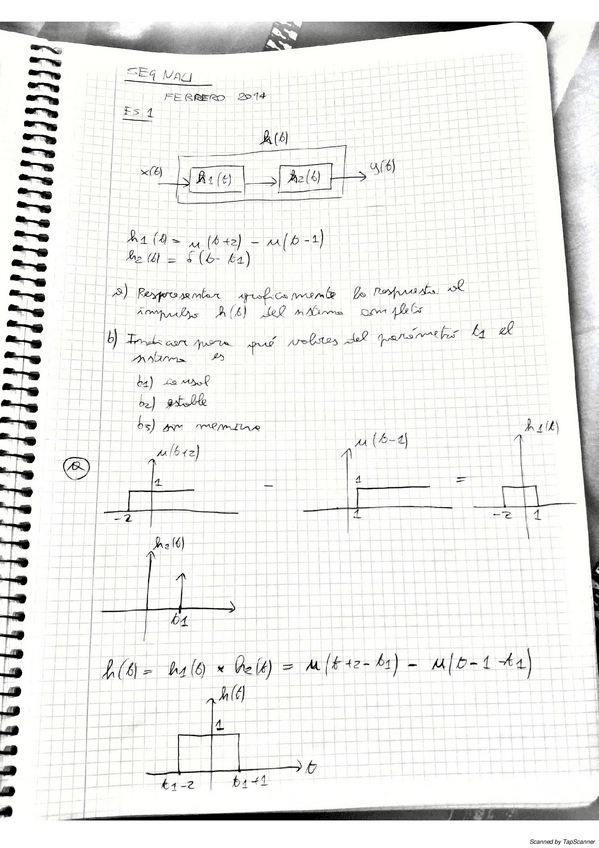 SEGNALI
FEBRERO 2014
ES 1
h(t)
x(t) h1(t) h2(t) y(t)
h1(t) = u(t+2) - u(t-1)
h2(t) = δ(t-t1)
a) Respresentar graficamente la respuesta al
impulso h(t) del sistema completo
b) Indicar para qué valores del parámetro t1 el
sistema es
b1) causal
b2) estable
b3) sin memoria
a
u(t+2) u(t-1) h1(t)
1 - 1 =
-2 1 -2 1
h2(t)
t1
h(t) = h1(t) * h2(t) = u(t+2-t1) - u(t-1-t1)
h(t)
1
t1-2 t1+1 t
Scanned by TapScanner